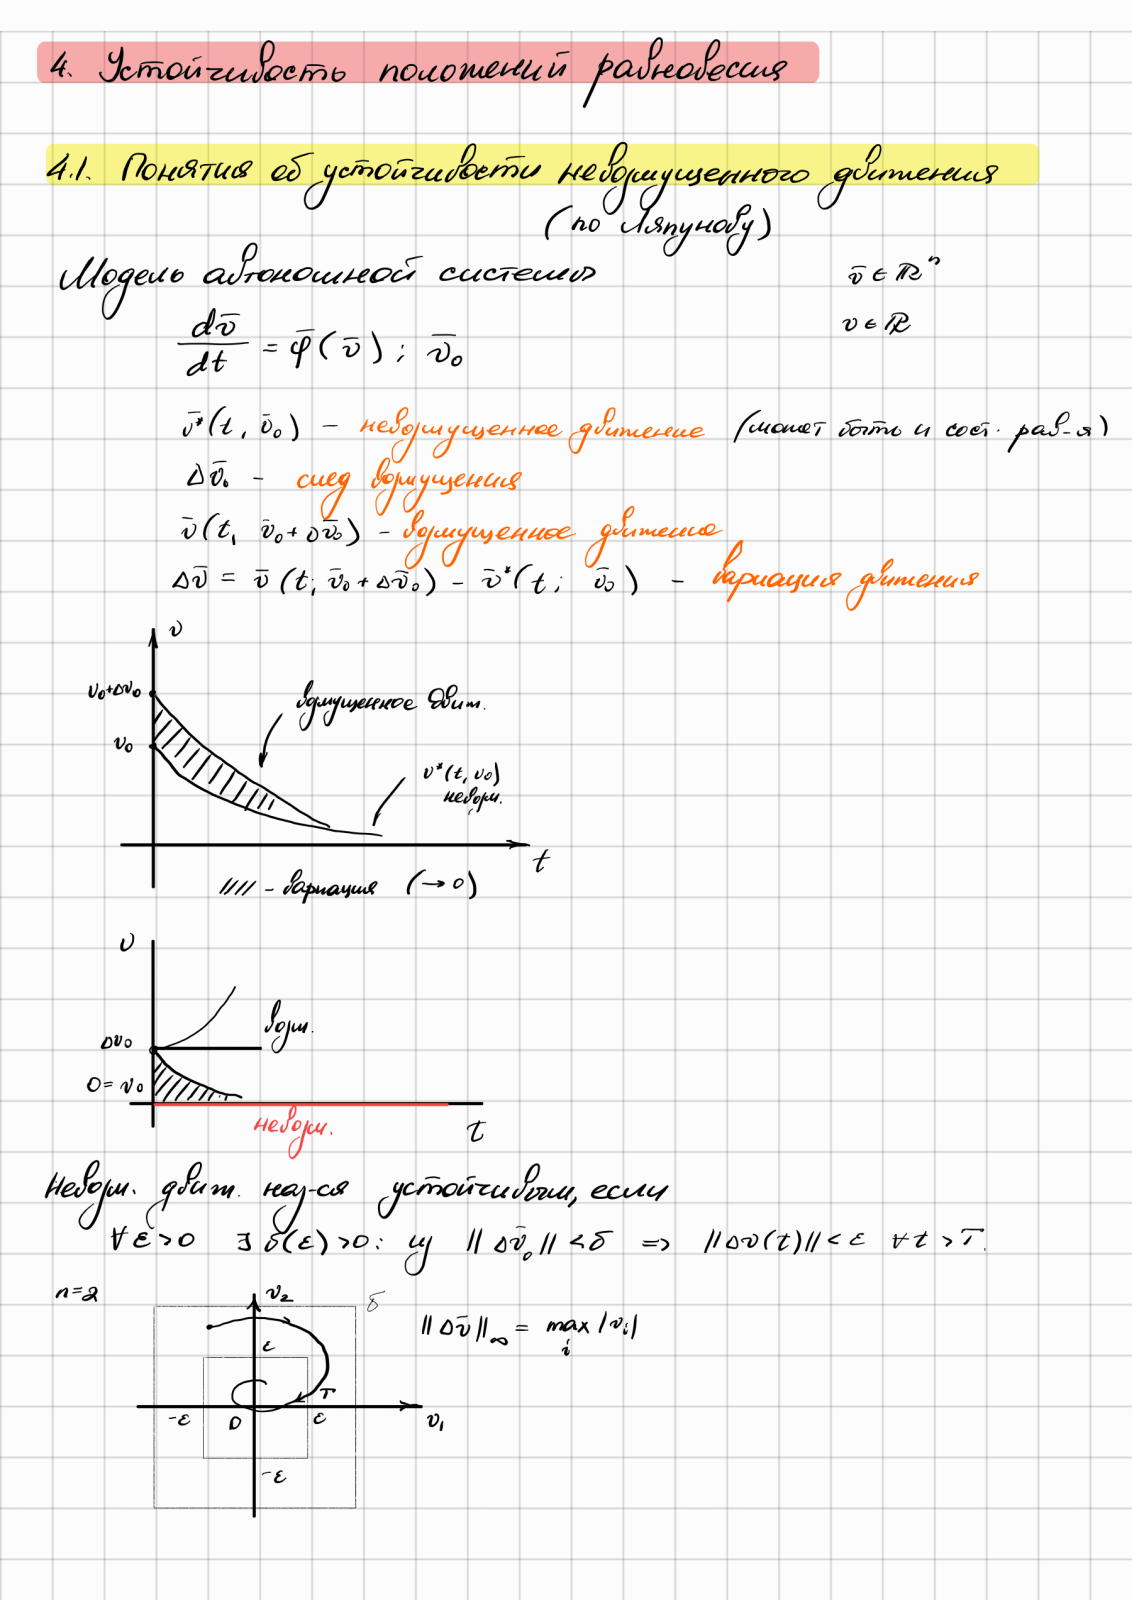 4. Устойчивость положений равновесия
4.1. Понятия об устойчивости невозмущенного движения
(по Ляпунову)
Модель автономной системы
v̄ ∈ ℝⁿ
v ∈ ℝ
dv̄/dt = φ̄(v̄); v̄₀
v̄*(t, v̄₀) – невозмущенное движение (может быть и сост. рав-я)
Δv̄₀ – след возмущения
v̄(t, v̄₀+Δv̄₀) – возмущенное движение
Δv̄ = v̄(t; v̄₀+Δv̄₀) – v̄*(t; v̄₀) – вариация движения
v
v₀+Δv₀
возмущенное движ.
v₀
v*(t, v₀)
невозм.
t
//// – вариация (→0)
v
Δv₀
возм.
0 = v₀
невозм.
t
Невозм. движ. наз-ся устойчивым, если
∀ε>0 ∃ δ(ε)>0: из ||Δv̄₀|| < δ => ||Δv(t)|| < ε ∀t > T.
n=2
v₂
δ
||Δv̄||∞ = max |vᵢ|
i
ε
T
-ε
0
ε
v₁
-ε